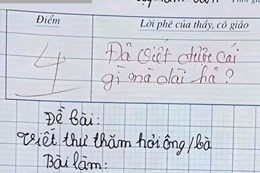 Điểm
Lời phê của thầy, cô giáo
4
Đã viết được cái
gì mà dài hả?
Đề bài:
Viết thư thăm hỏi ông/bà
Bài làm: